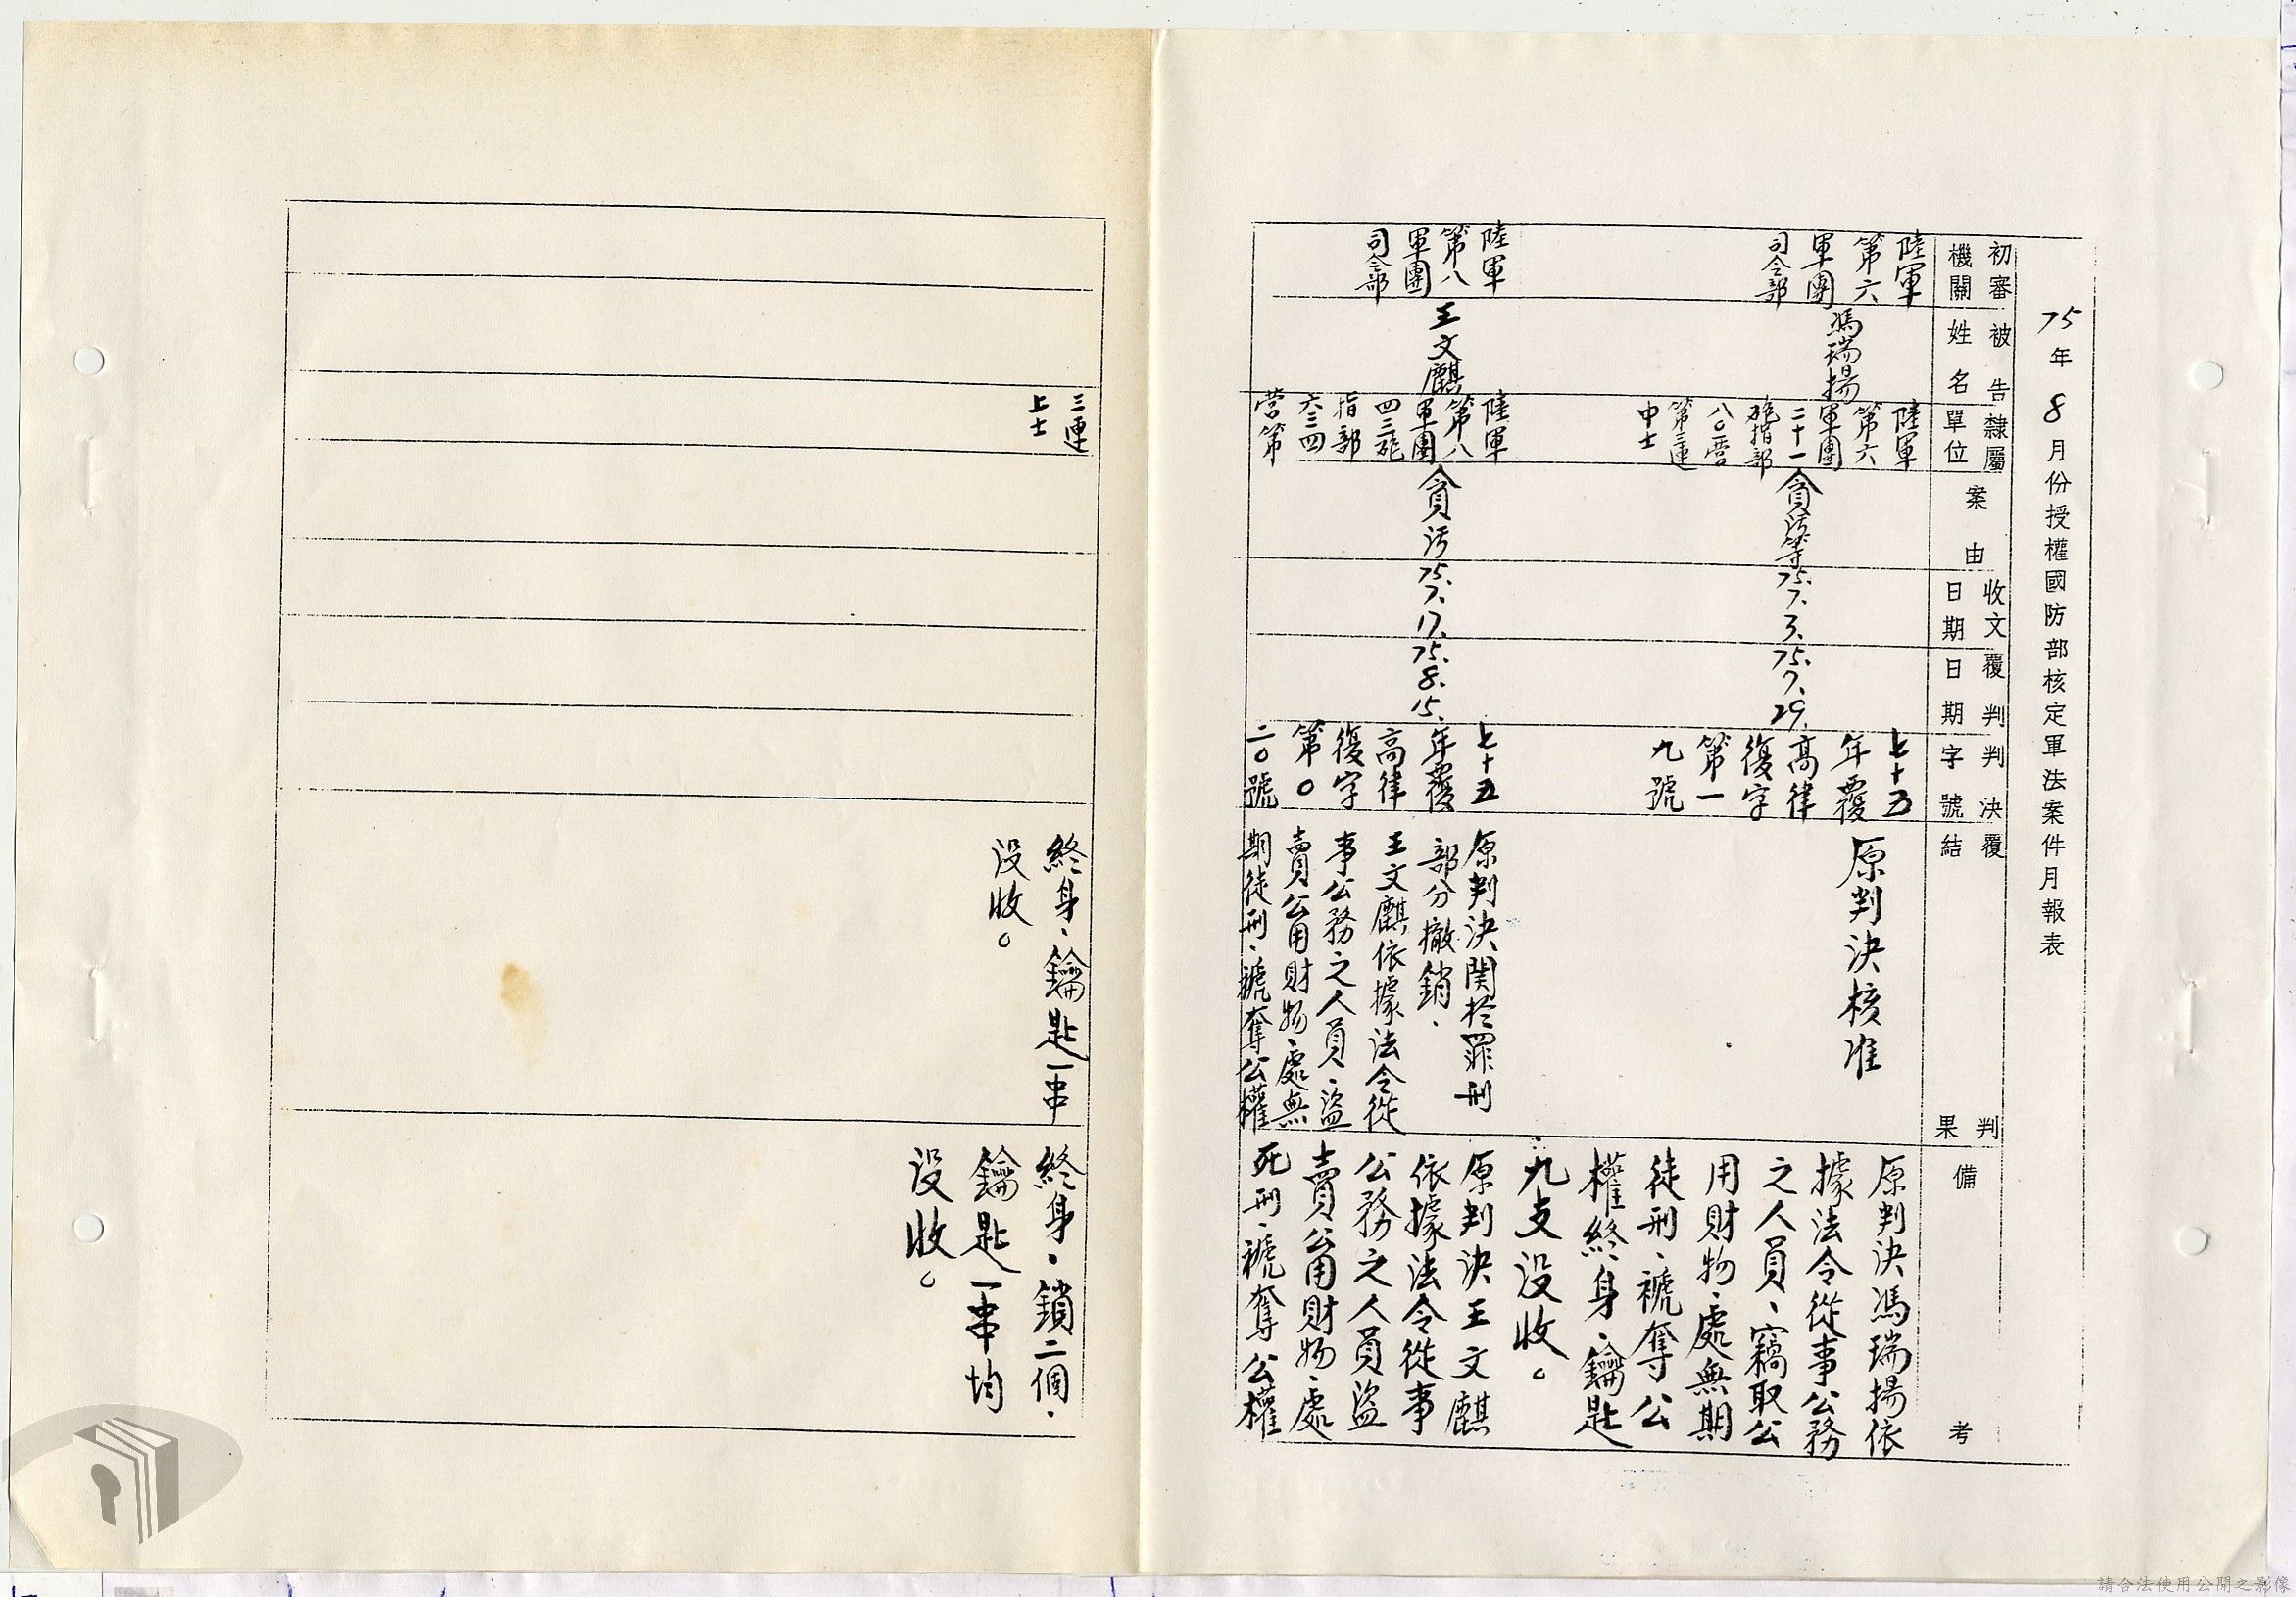 75年8月份授權國防部核定軍法案件月報表
初審
機關
被告
姓名
隸屬
單位
案由
收文
日期
覆判
日期
判決
字號
覆判
結果
備考
陸軍
第六
軍團
司令部
馮瑞揚
陸軍
第六
軍團
二十一
砲指部
八〇營
第三連
中士
貪污等
75.7.3.
75.7.29.
七十五
年覆
高律
復字
第一
九號
原判決核准
原判決馮瑞揚依
據法令從事公務
之人員、竊取公
用財物、處無期
徒刑、褫奪公
權終身、鑰匙
九支沒收。
陸軍
第八
軍團
司令部
王文麒
陸軍
第八
軍團
四三砲
指部
六三四
營第
三連
上士
貪污
75.7.17.
75.8.15.
七十五
年覆
高律
復字
第〇
二〇號
原判決関於罪刑
部分撤銷、
王文麒依據法令從
事公務之人員、盜
賣公用財物、處無
期徒刑、褫奪公權
終身、鑰匙一串
沒收。
原判決王文麒
依據法令從事
公務之人員盜
賣公用財物、處
死刑、褫奪公權
終身、鎖二個、
鑰匙一串均
沒收。
請合法使用公開之影像